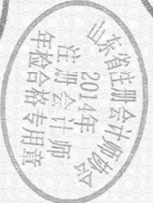 山东省注册会计师协会
2014年
注册会计师
年检合格专用章